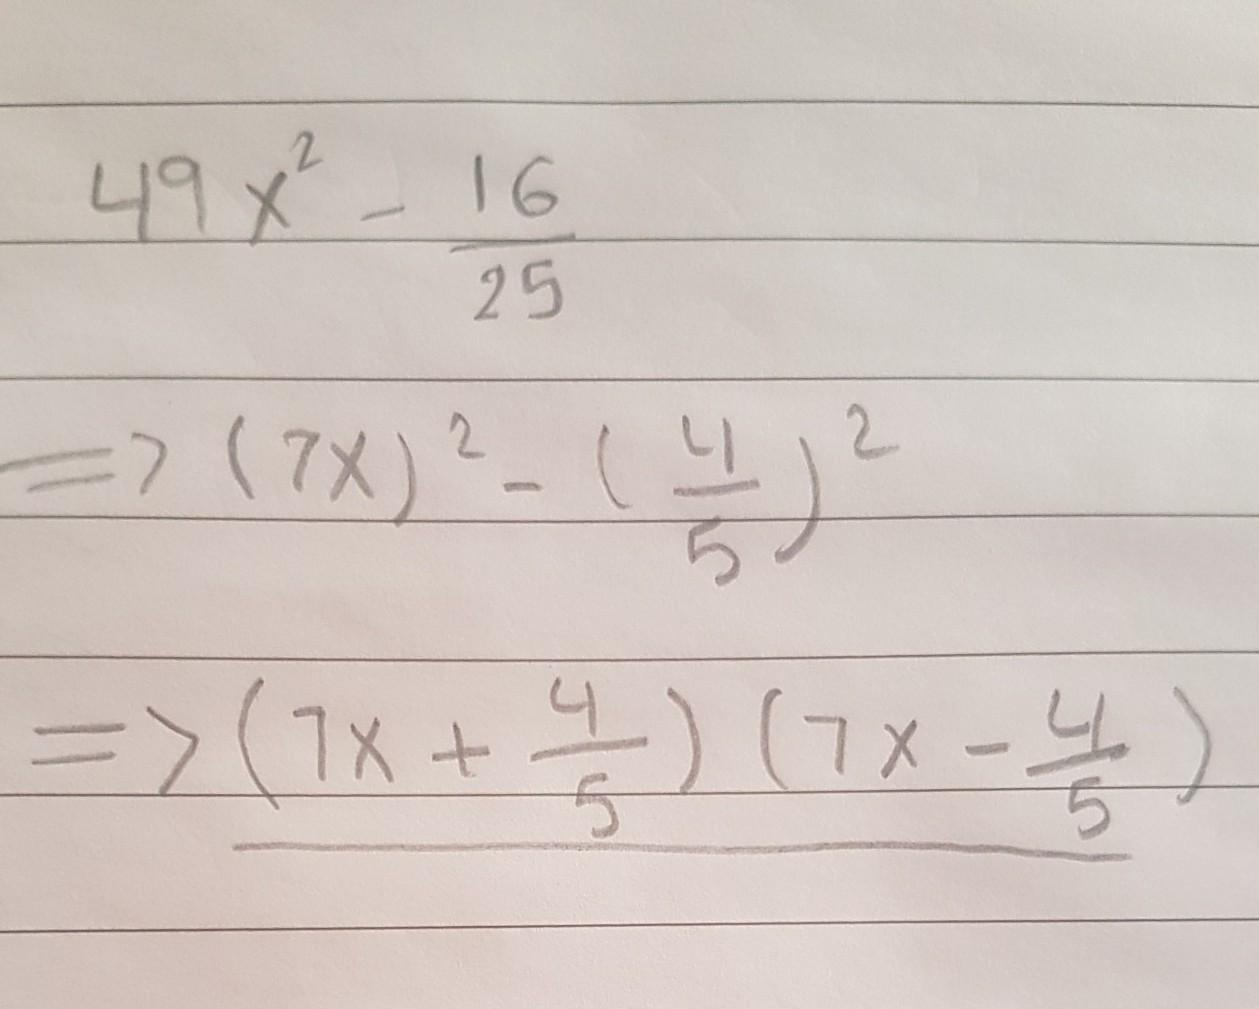 49x² - 16/25
=> (7x)² - (4/5)²
=> (7x + 4/5) (7x - 4/5)